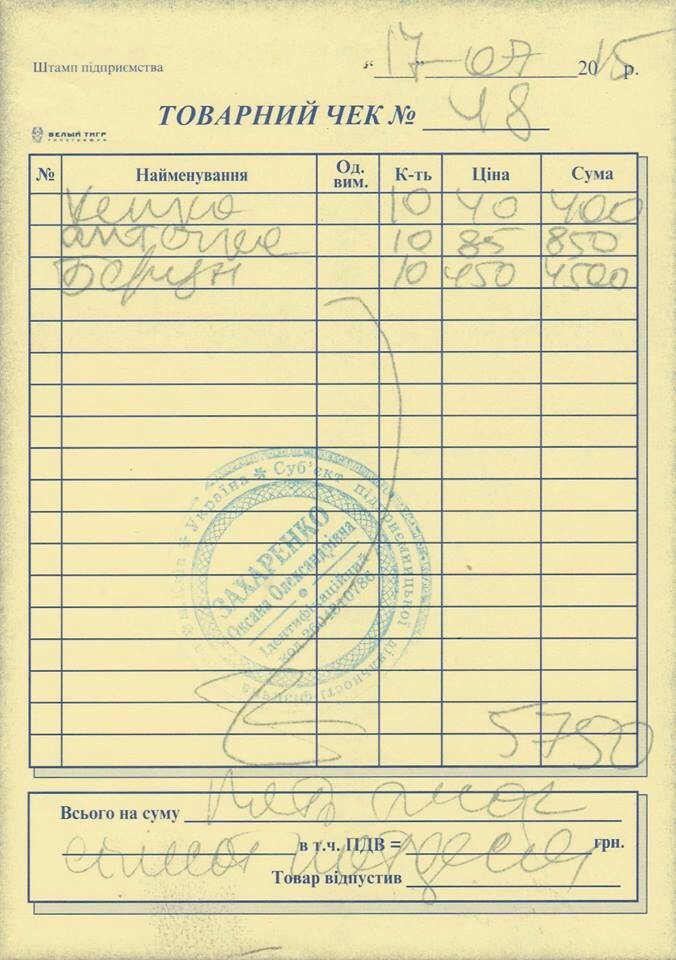 Штамп підприємства
" 17 " 07 2015 р.
ТОВАРНИЙ ЧЕК № 48
БЕЛЫЙ ТИГР
типография
№ Найменування Од. вим. К-ть Ціна Сума
Кепка 10 40 400
аптечка 10 85 850
Берци 10 450 4500
Україна * Суб'єкт підприємницької діяльності фізична
ЗАХАРЕНКО
Оксана Олександрівна
Ідентифікаційний
код
5750
Всього на суму
в т.ч. ПДВ = грн.
Товар відпустив